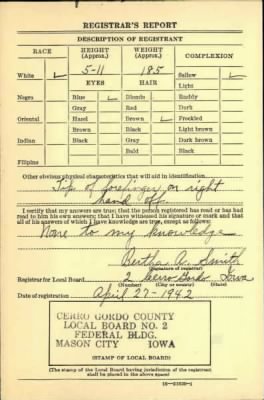 REGISTRAR'S REPORT
DESCRIPTION OF REGISTRANT
RACE HEIGHT (Approx.) WEIGHT (Approx.) COMPLEXION
White 5-11 185 Sallow
EYES HAIR Light
Negro Blue Blonde Ruddy
Gray Red Dark
Oriental Hazel Brown Freckled
Brown Black Light brown
Indian Black Gray Dark brown
Bald Black
Filipino
Other obvious physical characteristics that will aid in identification
Tip of forefinger on right
hand off.
I certify that my answers are true; that the person registered has read or has had
read to him his own answers; that I have witnessed his signature or mark and that
all of his answers of which I have knowledge are true, except as follows:
None to my knowledge
Bertha A. Smith
(Signature of registrar)
Registrar for Local Board 2 Cerro Gordo Iowa
(Number) (City or county) (State)
Date of registration April 27-1942
CERRO GORDO COUNTY
LOCAL BOARD NO. 2
FEDERAL BLDG.
MASON CITY IOWA
(STAMP OF LOCAL BOARD)
(The stamp of the Local Board having jurisdiction of the registrant
shall be placed in the above space)